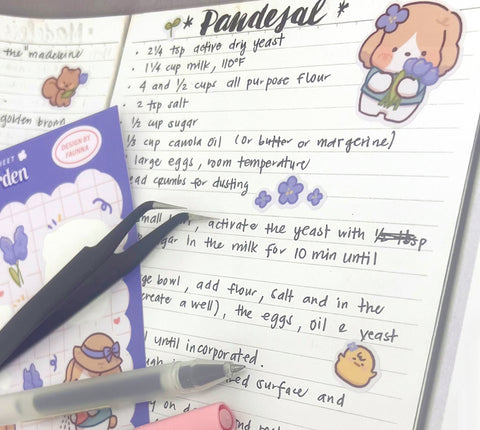 * Pandesal *
• 2 1/4 tsp active dry yeast
• 1 1/4 cup milk, 110°F
• 4 and 1/2 cups all purpose flour
• 2 tsp salt
1/2 cup sugar
1/3 cup canola oil (or butter or margerine)
large eggs, room temperature
ead crumbs for dusting
small, activate the yeast with
in the milk for 10 min until
ge bowl, add flour, salt and in the
create a well), the eggs, oil & yeast
until incorporated.
surface and
on
the "madeleine
golden brown
DESIGN BY
SHEET
rden